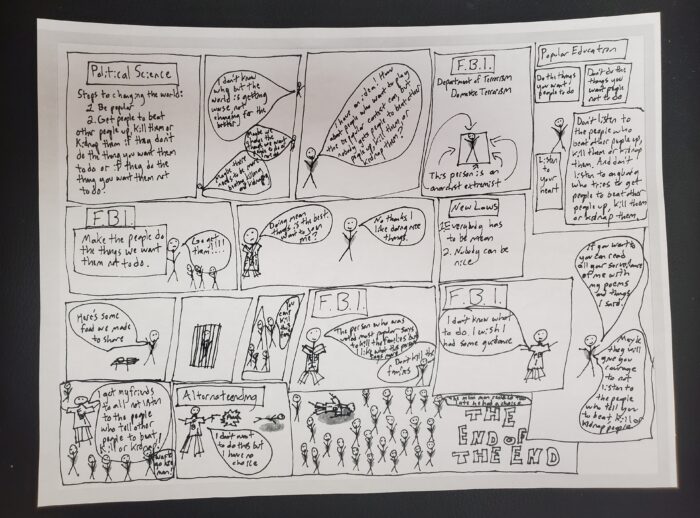 Political Science
Steps to changing the world:
1. Be popular
2. Get people to beat
other people up, kill them or
kidnap them if they don't
do the thing you want them
to do or if they do the
thing you want them not
to do.
I don't know
why but the
world is getting
worse not
changing for the
better!
Maybe
there
need to be
more
beating killing
and kidnapping
I have an idea! How
about people who want to play
the be popular contest can, but
nobody gets people to beat other
people up, kill them or
kidnap them?
F.B.I.
Department of Terrorism
Domestic Terrorism
This person is an
anarchist extremist
Popular Education
Do the things
you want
people to do
Don't do the
things you
want people
not to do
Listen
to
your
heart
Don't listen to
the people who
beat other people up,
kill them or kidnap
them. And don't
listen to anybody
who tries to get
people to beat other
people up, kill them
or kidnap them.
F.B.I.
Make the people do
the things we want
them not to do.
Go get
them!!!!
Doing mean
things is the best.
Want to join
me?
No thanks I
like doing nice
things.
New Laws
1. Everybody has
to be mean
2. Nobody can be
nice
If you want to
you can read
all your surveillance
of me with
my poems
and things
I said.
Maybe
they will
give you
courage
to not
listen to
the people
who tell you
to beat, kill or
kidnap people
Here's some
food we made
to share
You
can't
kill the
families
F.B.I.
The person who was
voted most popular says
to kill the families but
I like what this person
says more
Don't kill the
families
F.B.I.
I don't know what
to do. I wish I
had some guidance
I got my friends
to all not listen
to the people
who tell other
people to beat
kill or kidnap!
Way to
go
man!
Alternate ending
I don't want
to do this but
have no
choice
The mean man realized too
late he had a choice.
THE
END OF
THE END